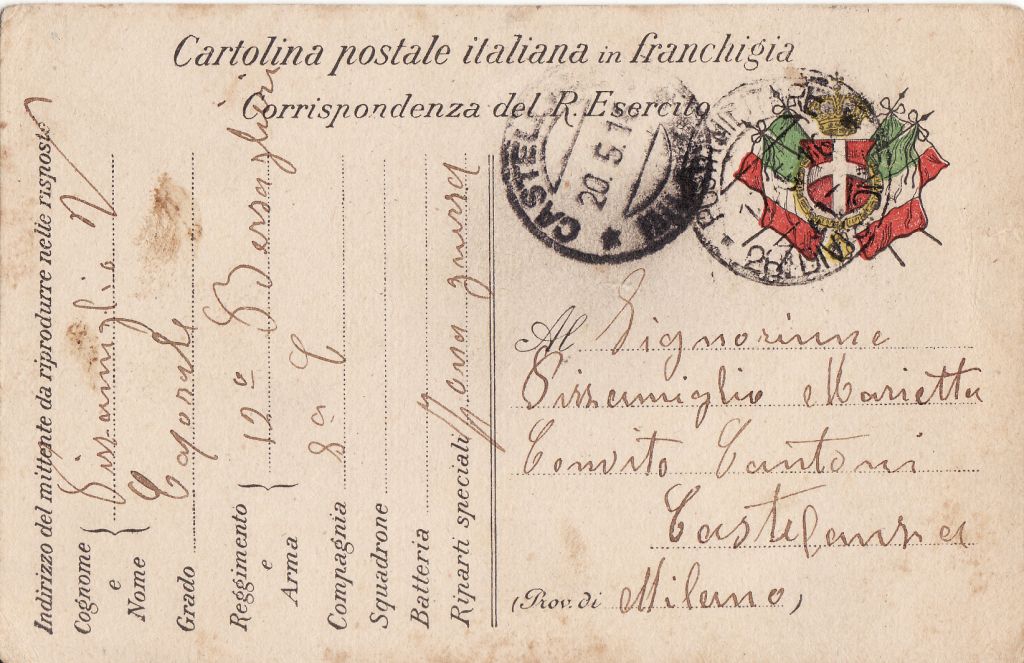 Cartolina postale italiana in franchigia
Corrispondenza del R. Esercito
Indirizzo del mittente da riprodurre nelle risposte
Cognome e Nome
Pissamiglio
Grado
Caporale
Reggimento e Arma
12º Bersaglieri
Compagnia 8ª C
Squadrone
Batteria
Riparti speciali Zona guerra
CASTEL
20.5.1
MILANO
POSTA MILITARE
28ª DIVIS
Al Signorinne
Pissamiglio Marietta
Convito Cantoni
Castelansa
(Prov. di Milano)